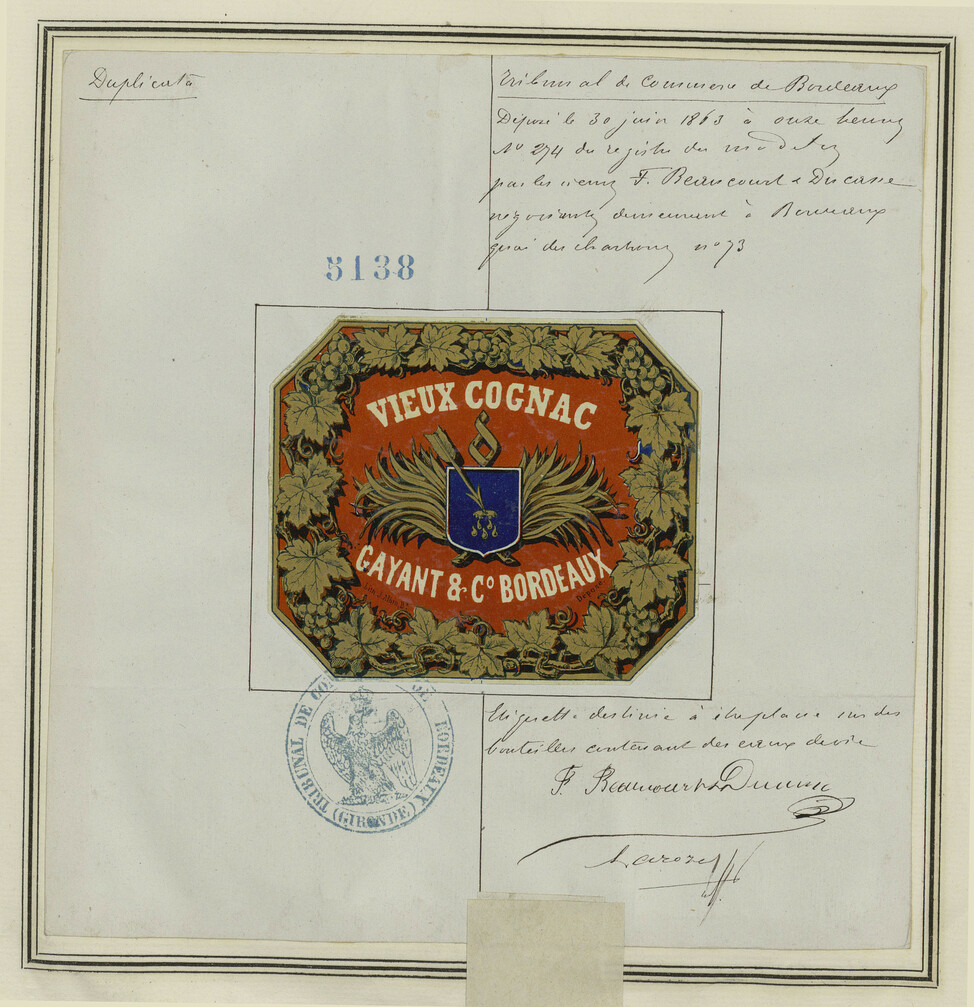 Duplicata
Tribunal de Commerce de Bordeaux
Déposé le 30 juin 1863 à onze heures
No 274 du registre des modeles
par les sieurs F. Beaucourt & Ducasse
négociants demeurant à Bordeaux
quai des chartrons no 73
5138
VIEUX COGNAC
GAYANT & Co BORDEAUX
Déposé
TRIBUNAL DE COMMERCE DE BORDEAUX
(GIRONDE)
Etiquette destinée à être placée sur des
bouteilles contenant des eaux de vie
F. Beaucourt & Ducasse